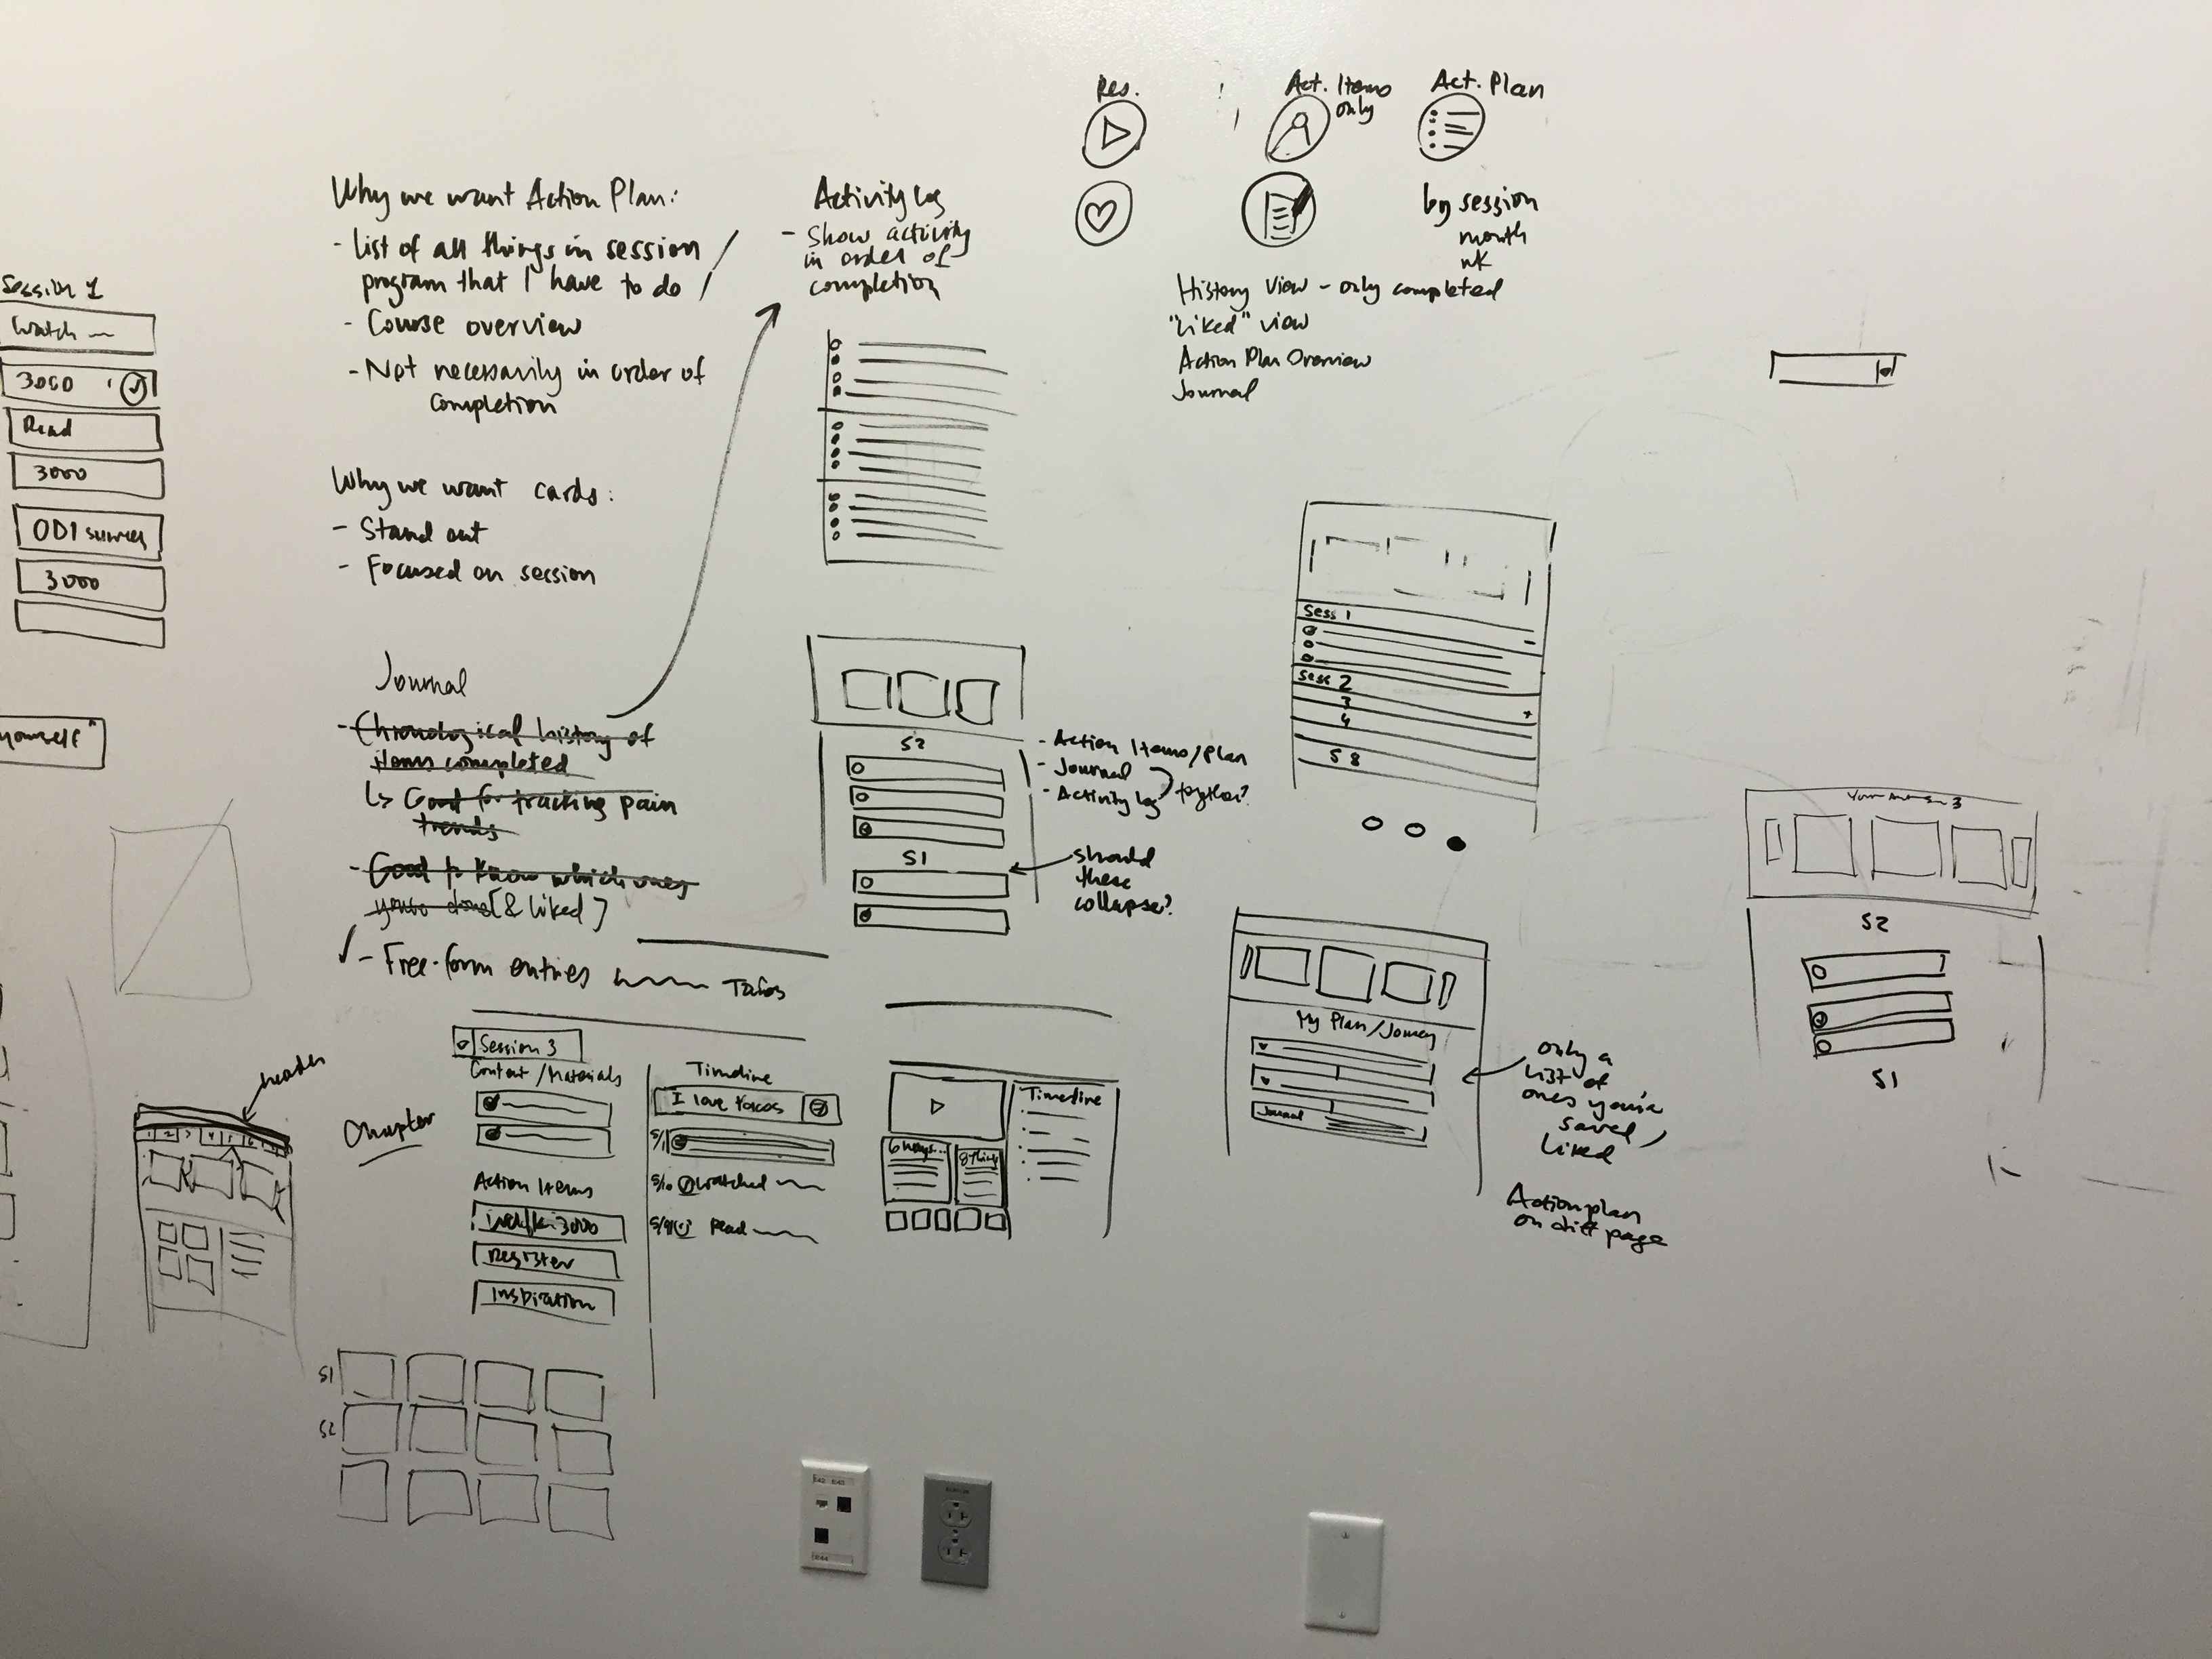 Session 1
Watch
3000
Read
3000
ODI survey
3000
yourself"
Why we want Action Plan:
- List of all things in session /
program that I have to do /
- Course overview
- Not necessarily in order of
completion
Why we want cards:
- Stand out
- Focused on session
Journal
- Chronological history of
items completed
↳ Good for tracking pain
trends
- Good to know which ones
[& liked]
✓ - Free-form entries
header
1 2 3 4 5 6
Chapter
Session 3
Content/Materials
Action Items
3000
Register
Inspiration
Timeline
I love tacos
Watched
Read
S1
S2
Activity Log
- Show activity
in order of
completion
S2
S1
- Action Items/Plan
- Journal
- Activity Log
together?
should
these
collapse?
6 ways...
8 things
Timeline
Res.
Act. Items
only
Act. Plan
by session
month
wk
History view - only completed
"Liked" view
Action Plan Overview
Journal
Sess 1
Sess 2
3
4
S 8
My Plan/Journey
Journal
only a
list of
ones you've
saved/
liked
Action plan
on diff page
S2
S1